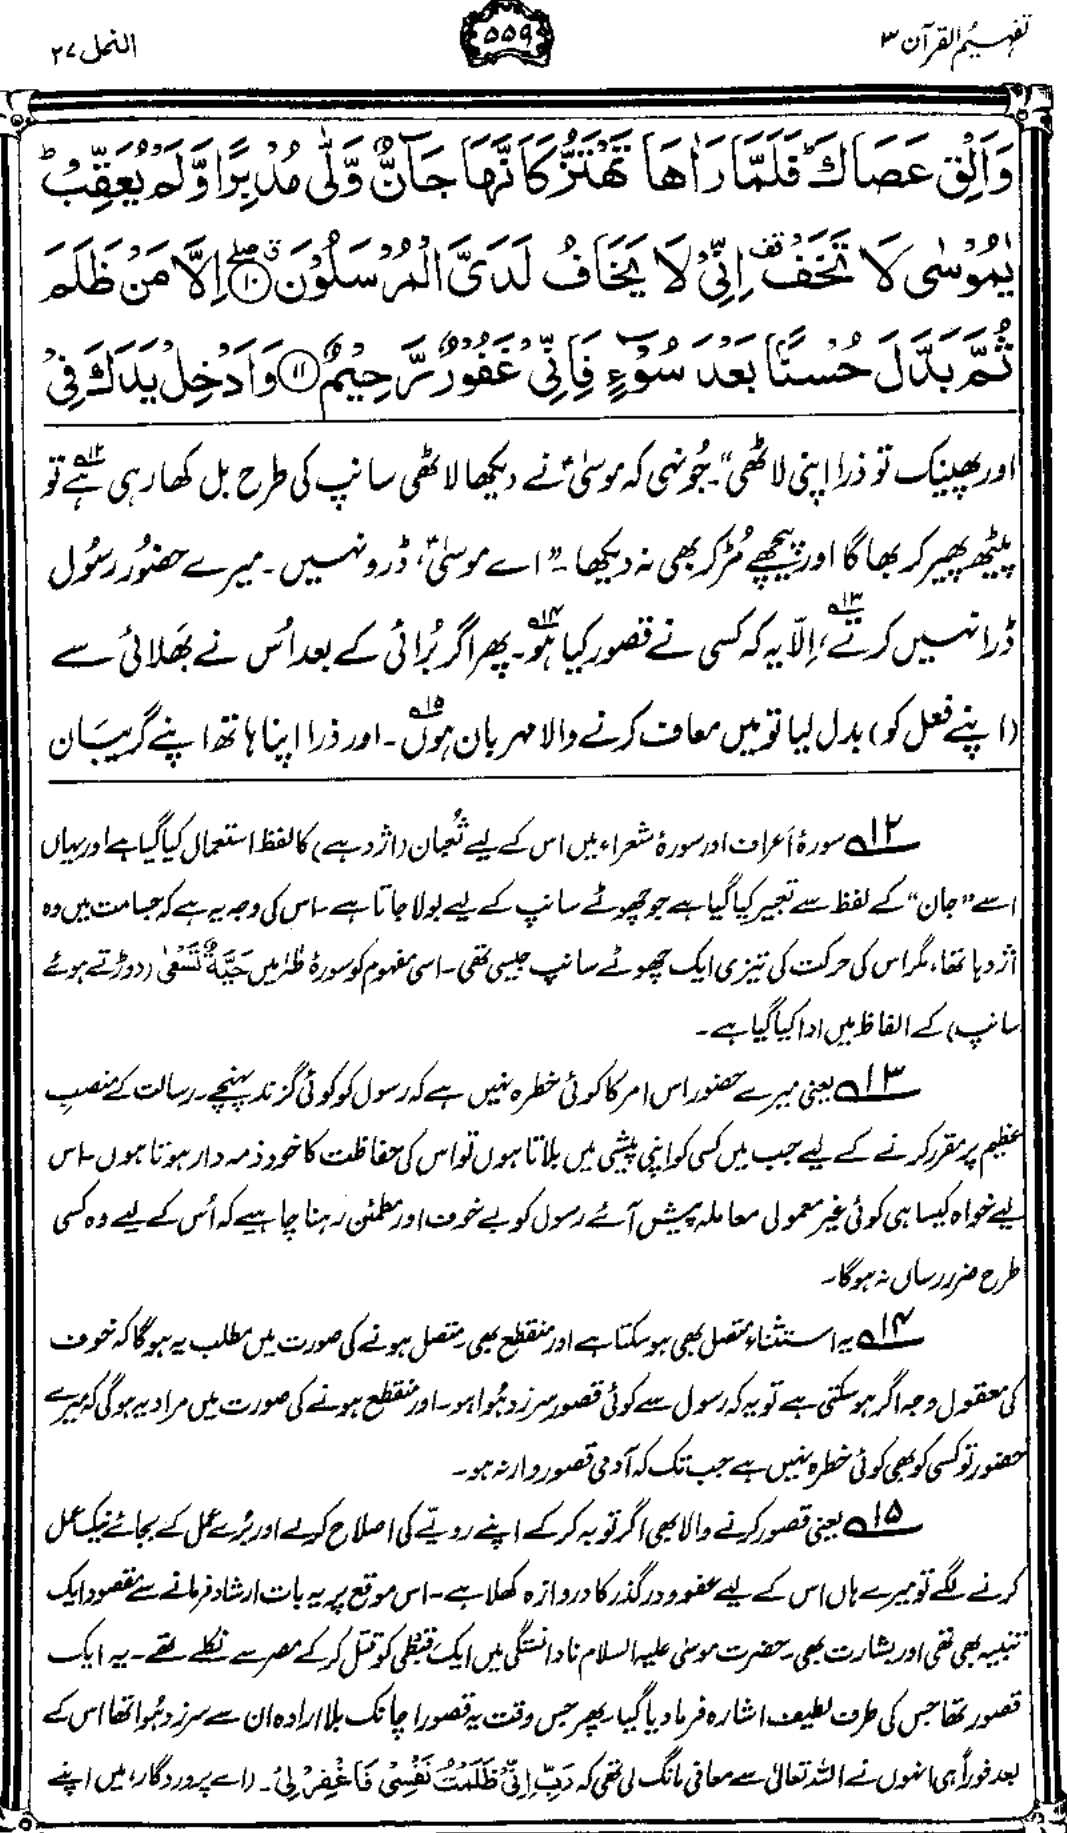 تفہیم القرآن ۳
۵۵۹
النمل ۲۷
وَاَلْقِ عَصَاكَ ؕ فَلَمَّا رَاٰهَا تَهْتَزُّ كَاَنَّهَا جَآنٌّ وَّلّٰى مُدْبِرًا وَّلَمْ يُعَقِّبْ ؕ
يٰمُوْسٰى لَا تَخَفْ ۫ اِنِّيْ لَا يَخَافُ لَدَيَّ الْمُرْسَلُوْنَ ۱۰ اِلَّا مَنْ ظَلَمَ
ثُمَّ بَدَّلَ حُسْنًۢا بَعْدَ سُوْٓءٍ فَاِنِّيْ غَفُوْرٌ رَّحِيْمٌ ۱۱ وَاَدْخِلْ يَدَكَ فِيْ
اور پھینک تو ذرا اپنی لاٹھی“۔ جُونہی کہ موسیٰؑ نے دیکھا لاٹھی سانپ کی طرح بل کھا رہی ہے ۱۲؎ تو
پیٹھ پھیر کر بھاگا اور پیچھے مُڑ کر بھی نہ دیکھا۔ ”اے موسیٰؑ، ڈرو نہیں۔ میرے حضُور رسُول
ڈرا نہیں کرتے ۱۳؎، اِلّا یہ کہ کسی نے قصور کیا ہو ۱۴؎۔ پھر اگر بُرائی کے بعد اُس نے بھَلائی سے
(اپنے فعل کو) بدل لیا تو میں معاف کرنے والا مہربان ہوں ۱۵؎۔ اور ذرا اپنا ہاتھ اپنے گریبان
۱۲؎ سورۂ اَعراف اور سورۂ شعراء میں اس کے لیے ثُعبان (اژدہے) کا لفظ استعمال کیا گیا ہے اور یہاں
اسے ”جان“ کے لفظ سے تعبیر کیا گیا ہے جو چھوٹے سانپ کے لیے بولا جاتا ہے۔ اس کی وجہ یہ ہے کہ جسامت میں وہ
اژدہا تھا، مگر اس کی حرکت کی تیزی ایک چھوٹے سانپ جیسی تھی۔ اسی مفہوم کو سورۂ طٰہٰ میں حَيَّةٌ تَسْعٰى (دوڑتے ہوئے
سانپ) کے الفاظ میں ادا کیا گیا ہے۔
۱۳؎ یعنی میرے حضور اس امر کا کوئی خطرہ نہیں ہے کہ رسول کو کوئی گزند پہنچے۔ رسالت کے منصبِ
عظیم پر مقرر کرنے کے لیے جب میں کسی کو اپنی پیشی میں بلاتا ہوں تو اس کی حفاظت کا خود ذمہ دار ہوتا ہوں۔ اس
لیے خواہ کیسا ہی کوئی غیر معمولی معاملہ پیش آئے رسول کو بے خوف اور مطمئن رہنا چاہیے کہ اُس کے لیے وہ کسی
طرح ضرر رساں نہ ہوگا۔
۱۴؎ یہ استثناء متصل بھی ہو سکتا ہے اور منقطع بھی۔ متصل ہونے کی صورت میں مطلب یہ ہوگا کہ خوف
کی معقول وجہ اگر ہو سکتی ہے تو یہ کہ رسول سے کوئی قصور سرزد ہُوا ہو۔ اور منقطع ہونے کی صورت میں مراد یہ ہوگی کہ میرے
حضور تو کسی کو بھی کوئی خطرہ نہیں ہے جب تک کہ آدمی قصور وار نہ ہو۔
۱۵؎ یعنی قصور کرنے والا بھی اگر توبہ کر کے اپنے رویّے کی اصلاح کر لے اور بُرے عمل کے بجائے نیک عمل
کرنے لگے تو میرے ہاں اس کے لیے عفو و درگذر کا دروازہ کھلا ہے۔ اس موقع پر یہ بات ارشاد فرمانے سے مقصود ایک
تنبیہ بھی تھی اور بشارت بھی۔ حضرت موسیٰ علیہ السلام نادانستگی میں ایک قبطی کو قتل کر کے مصر سے نکلے تھے۔ یہ ایک
قصور تھا جس کی طرف لطیف اشارہ فرما دیا گیا۔ پھر جس وقت یہ قصور اچانک بلا ارادہ ان سے سرزد ہُوا تھا اس کے
بعد فوراً ہی انہوں نے اللہ تعالیٰ سے معافی مانگ لی تھی کہ رَبِّ اِنِّيْ ظَلَمْتُ نَفْسِيْ فَاغْفِرْ لِيْ۔ (اے پروردگار، میں اپنے